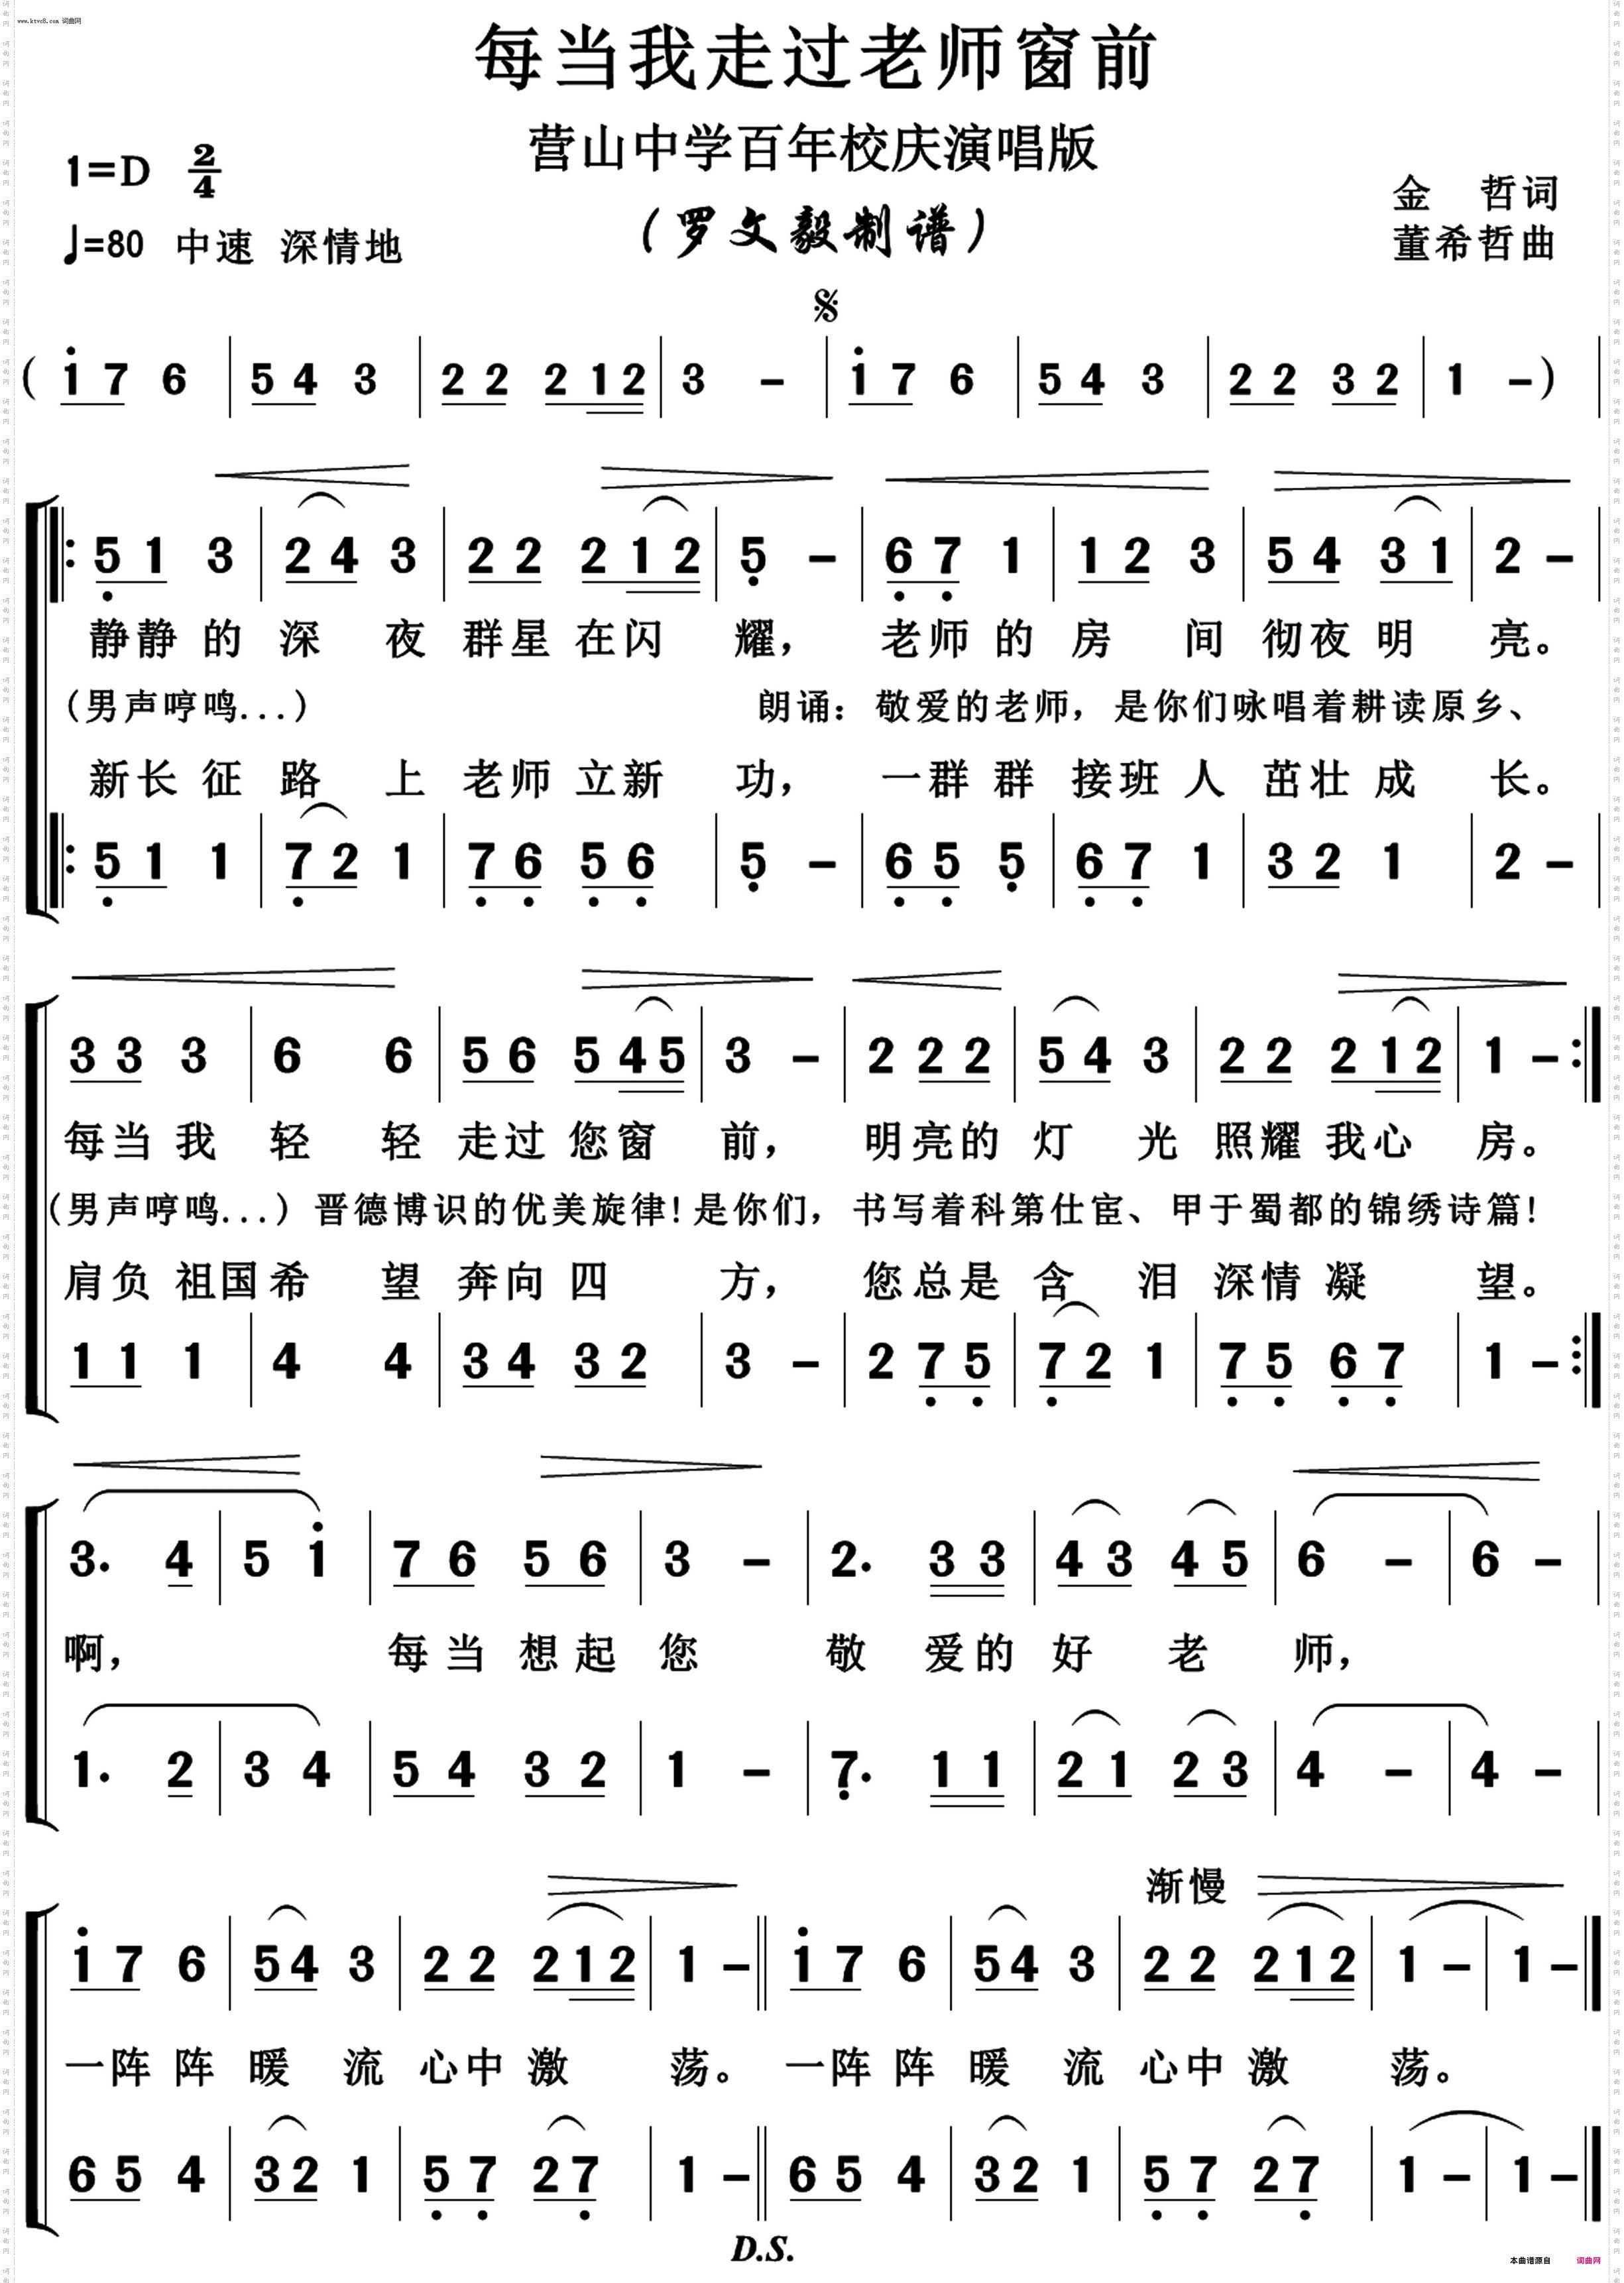 www.ktvc8.com 词曲网
每当我走过老师窗前
营山中学百年校庆演唱版
1=D 2/4
金 哲词
(罗文毅制谱)
董希哲曲
♩=80 中速 深情地
𝄋
( i 7 6 | 5 4 3 | 2 2 2 1 2 | 3 - | i 7 6 | 5 4 3 | 2 2 3 2 | 1 - ) |
5 1 3 | 2 4 3 | 2 2 2 1 2 | 5 - | 6 7 1 | 1 2 3 | 5 4 3 1 | 2 - |
静静 的 深 夜 群星 在闪 耀, 老师 的 房 间 彻夜 明 亮。
(男声哼鸣...) 朗诵:敬爱的老师,是你们咏唱着耕读原乡、
新长 征 路 上 老师 立新 功, 一群 群 接班 人 茁壮 成 长。
5 1 1 | 7 2 1 | 7 6 5 6 | 5 - | 6 5 5 | 6 7 1 | 3 2 1 | 2 - |
3 3 3 | 6 6 | 5 6 5 4 5 | 3 - | 2 2 2 | 5 4 3 | 2 2 2 1 2 | 1 - :|
每当 我 轻 轻 走过 您窗 前, 明 亮的 灯 光 照耀 我心 房。
(男声哼鸣...)晋德博识的优美旋律!是你们,书写着科第仕宦、甲于蜀都的锦绣诗篇!
肩负 祖国希 望 奔向 四 方, 您总是 含 泪 深情 凝 望。
1 1 1 | 4 4 | 3 4 3 2 | 3 - | 2 7 5 | 7 2 1 | 7 5 6 7 | 1 - :|
3. 4 | 5 i | 7 6 5 6 | 3 - | 2. 3 3 | 4 3 4 5 | 6 - | 6 - |
啊, 每当 想起 您 敬 爱的 好 老 师,
1. 2 | 3 4 | 5 4 3 2 | 1 - | 7. 1 1 | 2 1 2 3 | 4 - | 4 - |
渐慢
i 7 6 | 5 4 3 | 2 2 2 1 2 | 1 - || i 7 6 | 5 4 3 | 2 2 2 1 2 | 1 - | 1 - ||
一阵 阵 暖 流 心中 激 荡。 一阵 阵 暖 流 心中 激 荡。
6 5 4 | 3 2 1 | 5 7 2 7 | 1 - || 6 5 4 | 3 2 1 | 5 7 2 7 | 1 - | 1 - ||
D.S.
本曲谱源自 词曲网